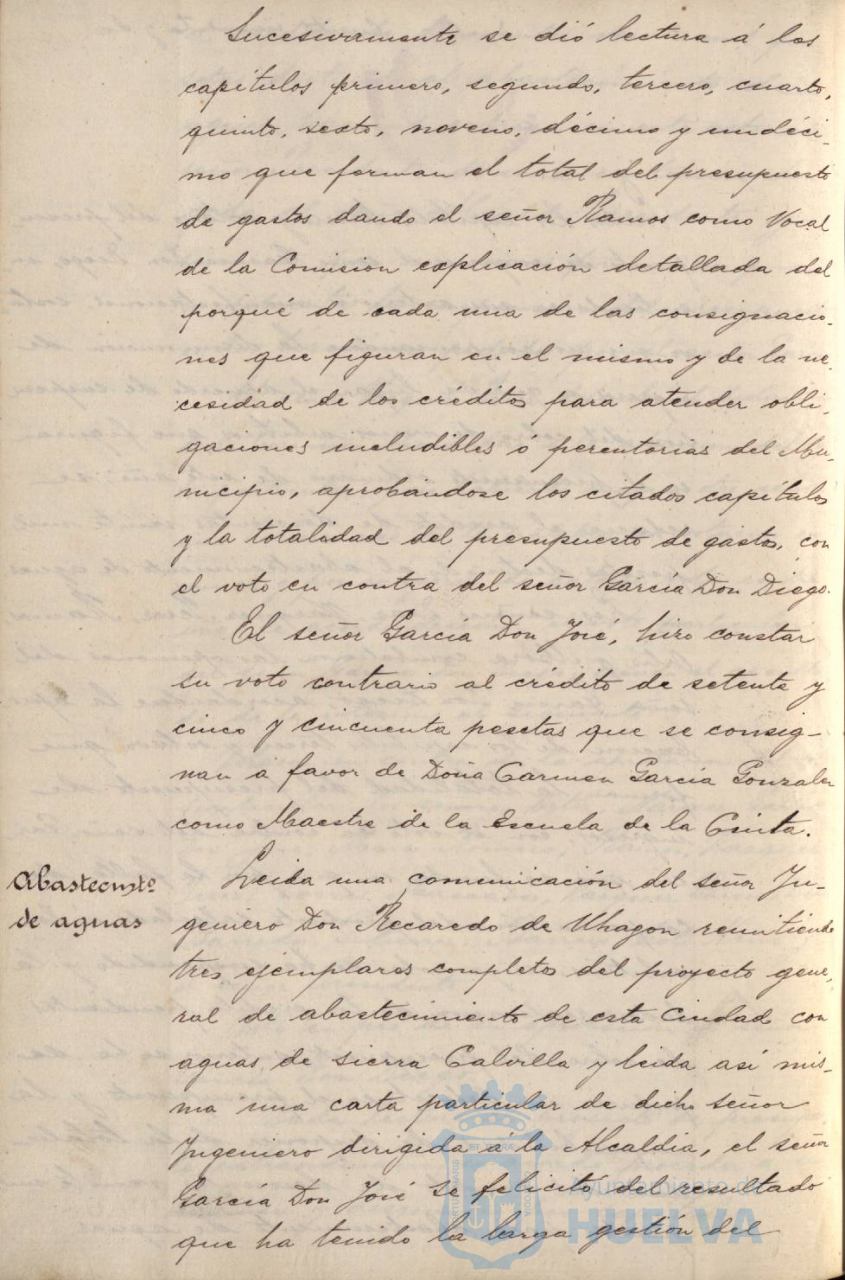 Sucesivamente se dió lectura á los
capítulos primero, segundo, tercero, cuarto,
quinto, sexto, noveno, décimo y undéci-
mo que forman el total del presupuesto
de gastos dando el señor Ramos como Vocal
de la Comision explicación detallada del
porqué de cada una de las consignacio-
nes que figuran en el mismo y de la ne-
cesidad de los créditos para atender obli-
gaciones ineludibles ó perentorias del Mu-
nicipio, aprobándose los citados capítulos
y la totalidad del presupuesto de gastos, con
el voto en contra del señor García Don Diego.
El señor García Don José, hizo constar
su voto contrario al crédito de setenta y
cinco y cincuenta pesetas que se consig-
nan a favor de Doña Carmen García Gonzalez
como Maestra de la Escuela de la Cinta.
Abastecmtº
de aguas
Leida una comunicación del señor In-
geniero Don Recaredo de Uhagon remitiendo
tres ejemplares completos del proyecto gene-
ral de abastecimiento de esta Ciudad con
aguas de sierra Calvilla y leida así mis-
ma una carta particular de dicho señor
Ingeniero dirigida á la Alcaldia, el señor
García Don José se felicitó del resultado
que ha tenido la larga gestión del
Ayuntamiento de
HUELVA